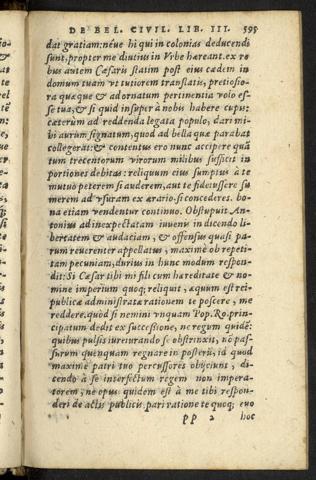 DE BEL. CIVIL. LIB. III. 595
dat gratiam: néue hi qui in colonias deducendi
sunt, propter me diutius in Vrbe hæreant. ex re
bus autem Cæsaris statim post eius cædem in
domum tuam vt tutiorem translatis, pretiosio-
ra quæque & adornatum pertinentia volo es-
se tua, & si quid insuper à nobis habere cupis:
cæterùm ad reddenda legata populo, dari mi-
hi aurum signatum, quod ad bella quæ parabat
collegerat: & contentus ero nunc accipere quã
tum trecentorum virorum milibus sufficit in
portiones debitas: reliquum eius sumptus à te
mutuò peterem si auderem, aut te fideiussore su
merem ad vsuram ex ærario, si concederes. bo-
na etiam vendentur continuo. Obstupuit An-
tonius ad inexpectatam iuuenis in dicendo li-
bertatem & audaciam, & offensus quasi pa-
rum reuerenter appellatus, maximè ob repeti-
tam pecuniam, durius in hunc modum respon-
dit: Si Cæsar tibi mi fili cum hæreditate & no-
mine imperium quoq; reliquit, æquum est rei-
publicæ administratæ rationem te poscere, me
reddere. quòd si nemini vnquam Pop. Ro. prin-
cipatum dedit ex successione, ne regum quidẽ:
quibus pulsis iureiurando se obstrinxit, nõ pas-
surum quenquam regnare in posterũ, id quod
maximè patri tuo percussores obijciunt, di-
cendo à se interfectum regem non impera-
torem, ne opus quidem est à me tibi respon-
deri de actis publicis. pari ratione te quoq; euo
pp 2 hoc